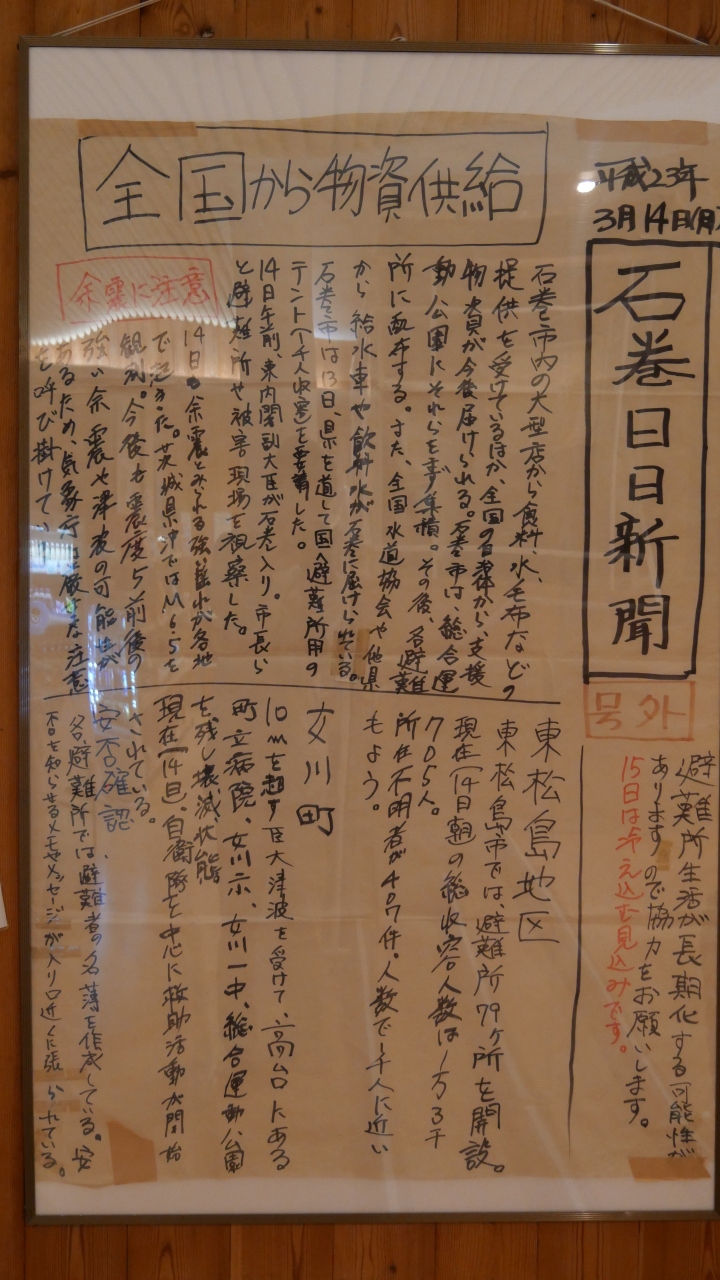 平成23年
3月14日(月)
石巻日日新聞
号外
避難所生活が長期化する可能性が
ありますので協力をお願いします。
15日は冷え込む見込みです。
全国から物資供給
石巻市内の大型店から食料、水、毛布などの
提供を受けているほか、全国の自治体から、支援
物資が今後届けられる。石巻市は、総合運
動公園にそれらをまず集積。その後、各避難
所に配布する。また、全国水道協会や他県
から給水車や飲料水が石巻に届けられている。
石巻市は13日、県を通して国へ避難所用の
テント(千人収容)を要請した。
14日午前、東内閣副大臣が石巻入り。市長ら
と避難所や被害現場を視察した。
余震に注意
14日も余震とみられる強い揺れが各地
で起きた。茨城県沖ではM6.5を
観測。今後も震度5前後の
強い余震や津波の可能性が
あるため、気象庁は厳重な注意
を呼び掛けてい
東松島地区
東松島市では、避難所79ヶ所を開設。
現在(14日朝)の総収容人数は1万3千
705人。
所在不明者が407件。人数で1千人に近い
もよう。
女川町
10mを超す巨大津波を受けて、高台にある
町立病院、女川二小、女川一中、総合運動公園
を残し壊滅状態
現在(14日)、自衛隊を中心に救助活動が開始
されている。
安否確認
各避難所では避難者の名簿を作成している。安
否を知らせるメモやメッセージが入り口近くに張られている。